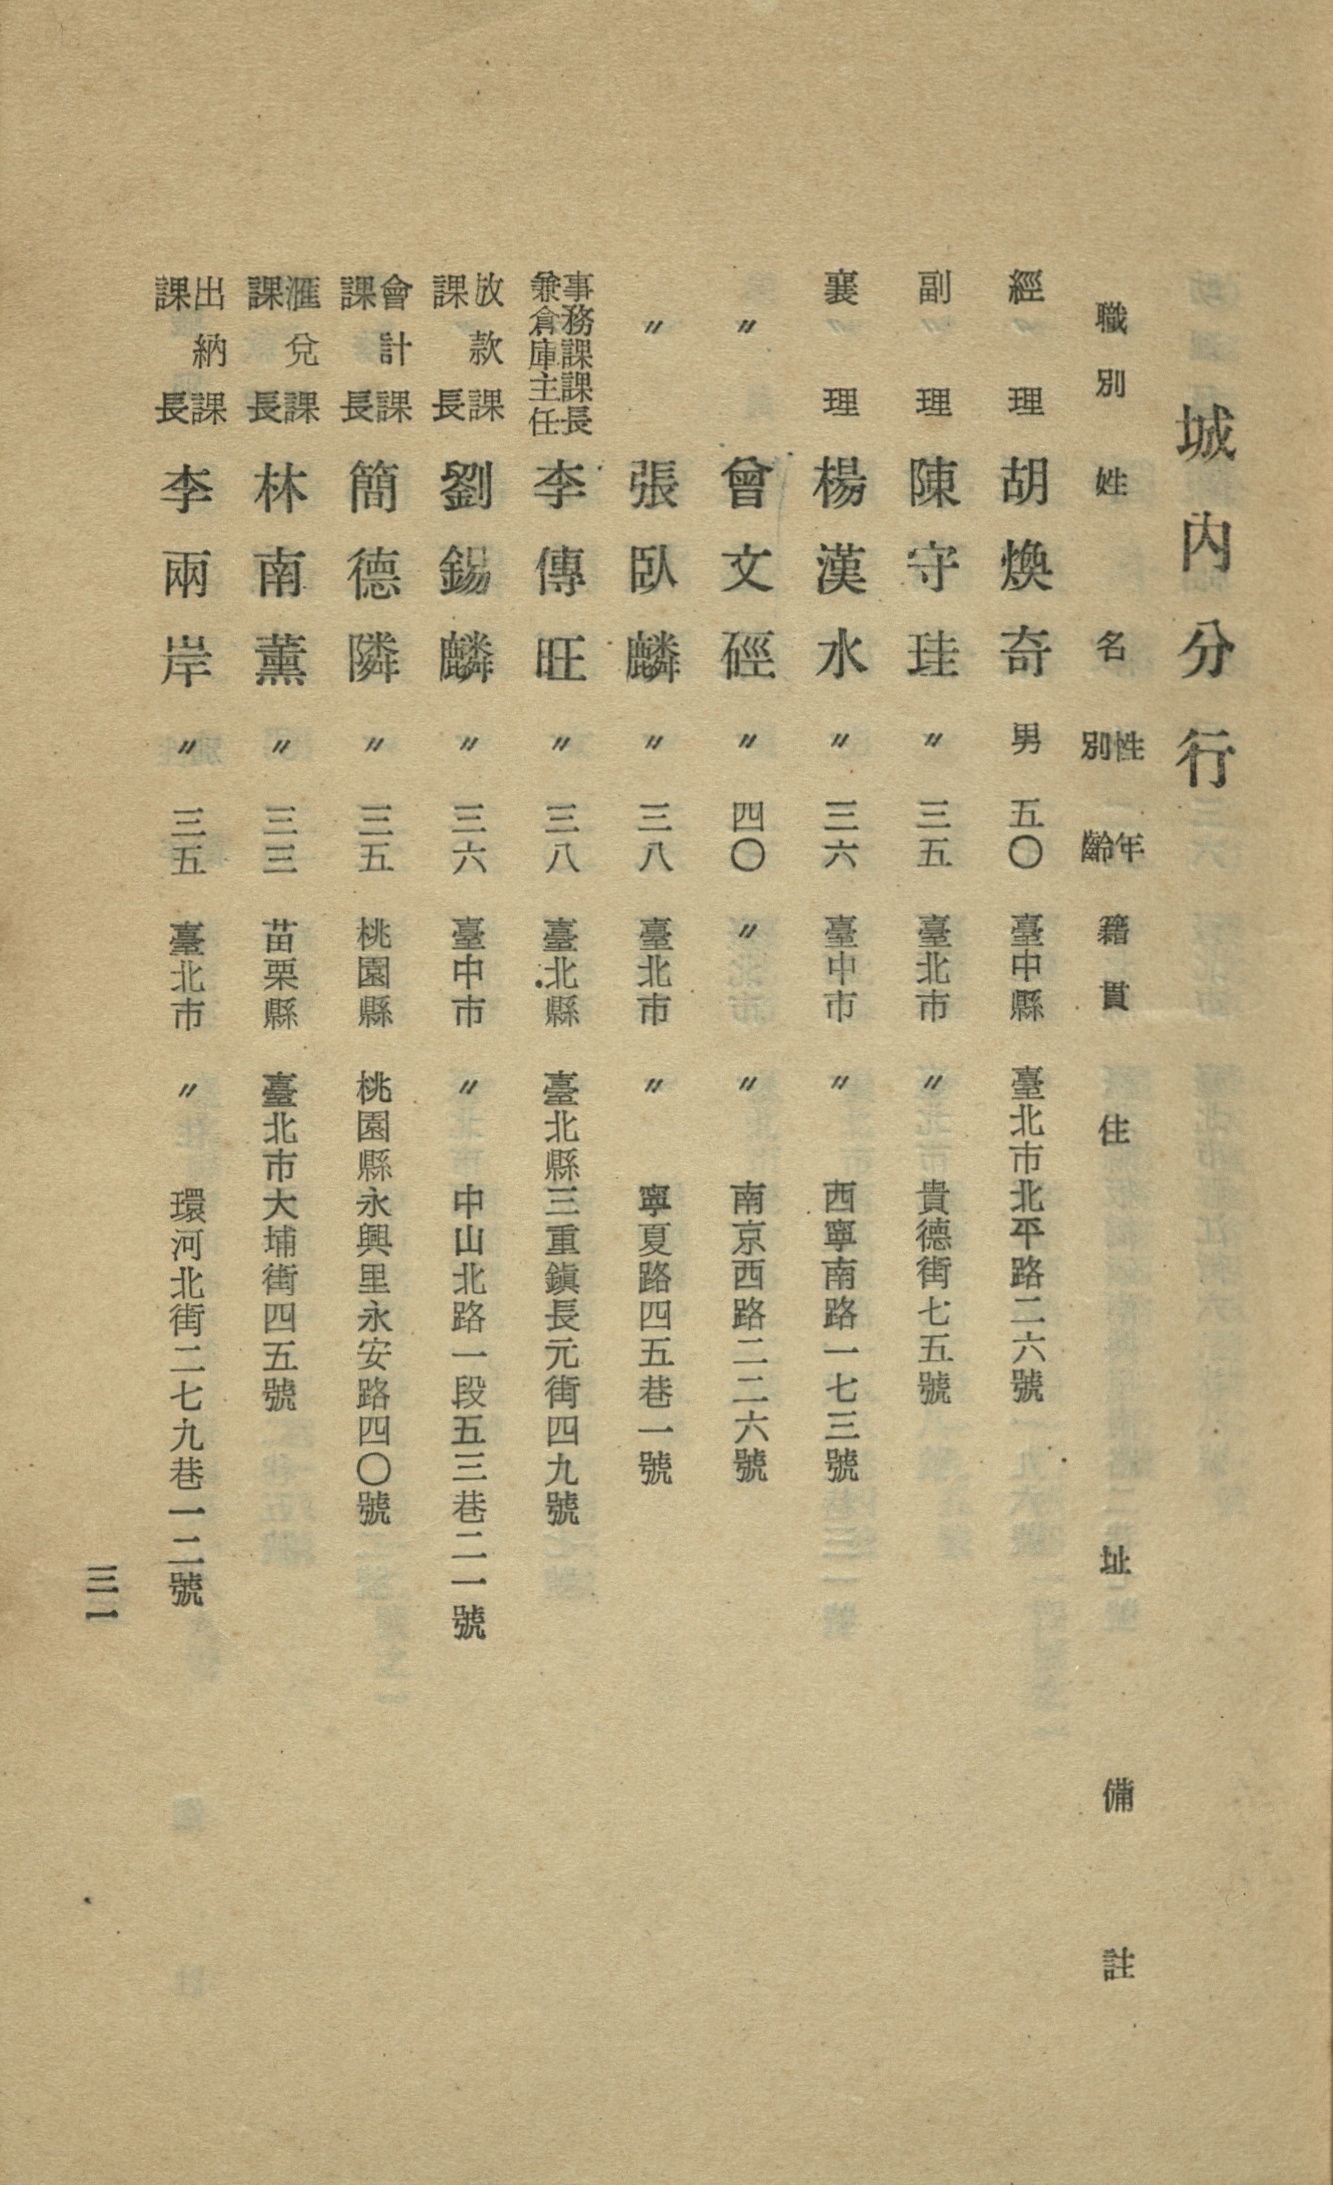 城內分行
職別 姓名 性別 年齡 籍貫 住址 備註
經理 胡煥奇 男 五〇 臺中縣 臺北市北平路二六號
副理 陳守珪 〃 三五 臺北市 〃 貴德街七五號
襄理 楊漢水 〃 三六 臺中市 〃 西寧南路一七三號
〃 曾文硜 〃 四〇 〃 〃 南京西路二二六號
〃 張臥麟 〃 三八 臺北市 〃 寧夏路四五巷一號
事務課課長兼倉庫主任 李傳旺 〃 三八 臺北縣 臺北縣三重鎭長元街四九號
放款課課長 劉錫麟 〃 三六 臺中市 〃 中山北路一段五三巷二一號
會計課課長 簡德隣 〃 三五 桃園縣 桃園縣永興里永安路四〇號
滙兌課課長 林南薰 〃 三三 苗栗縣 臺北市大埔街四五號
出納課課長 李兩岸 〃 三五 臺北市 〃 環河北街二七九巷一二號
三一